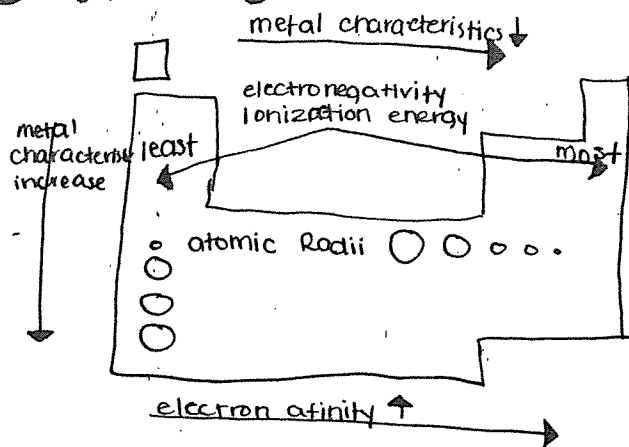 metal characteristics ↓
electronegativity
Ionization energy
metal
characterist
increase
least
most
atomic Radii
electron afinity ↑